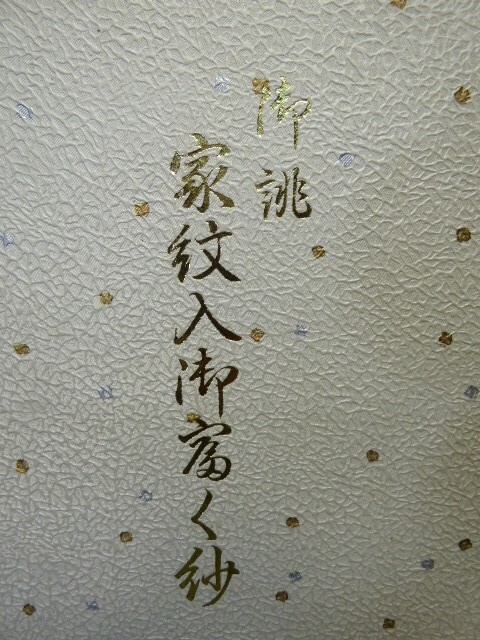 御誂
家紋入御富く紗